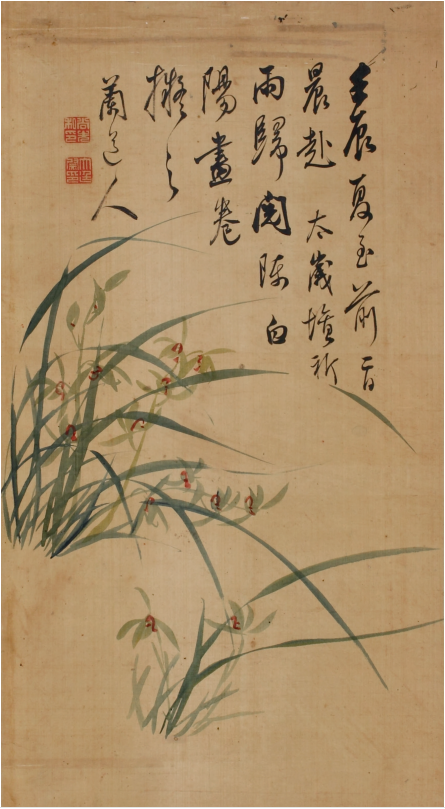 壬辰夏至前一日
晨赴太歲壇祈
雨歸閱陳白
陽畫卷
擬之
蘭道人